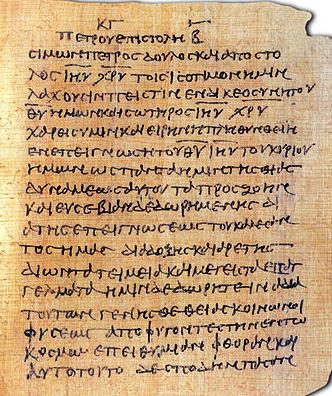 ΚΓ
ΠΕΤΡΟΥ ΕΠΙΣΤΟΛΗ Β
ΣΙΜΩΝ ΠΕΤΡΟΣ ΔΟΥΛΟΣ ΚΑΙ ΑΠΟΣΤΟ
ΛΟΣ ΙΗΥ ΧΡΥ ΤΟΙΣ ΙΣΟΤΙΜΟΝ ΗΜΙΝ
ΛΑΧΟΥΣΙΝ ΠΙΣΤΙΝ ΕΝ ΔΙΚΕΟΣΥΝΗ ΤΟΥ
ΘΥ ΗΜΩΝ ΚΑΙ ΣΩΤΗΡΟΣ ΙΗΥ ΧΡΥ
ΧΑΡΕΙΣ ΥΜΙΝ ΚΑΙ ΕΙΡΗΝΗ ΠΛΗΘΥΝΘΕΙΗ
ΕΝ ΕΠΕΙΓΝΩΣΗ ΤΟΥ ΘΥ ΙΗΥ ΤΟΥ ΚΥΡΙΟΥ
ΗΜΩΝ ΩΣ ΠΑΝΤΑ ΗΜΙΝ ΤΗΣ ΘΕΙΑΣ
ΔΥΝΑΜΕΩΣ ΑΥΤΟΥ ΤΑ ΠΡΟΣ ΖΩΗΝ
ΚΑΙ ΕΥΣΕΒΙΑΝ ΔΕΔΩΡΗΜΕΝΗΣ ΔΙ
Α ΤΗΣ ΕΠΙΓΝΩΣΕΩΣ ΤΟΥ ΚΑΛΕΣΑΝ
ΤΟΣ ΗΜΑΣ ΔΙΑ ΔΟΞΗΣ ΚΑΙ ΑΡΕΤΗΣ
ΔΙ ΩΝ ΤΑ ΤΕΙΜΕΙΑ ΚΑΙ ΜΕΓΙΣΤΑ ΕΠΑΓ
ΓΕΛΜΑΤΑ ΗΜΙΝ ΔΕΔΩΡΗΤΕ ΙΝΑ ΔΙΑ
ΤΟΥΤΩΝ ΓΕΝΗΣΘΕ ΘΕΙΑΣ ΚΟΙΝΩΝΟΙ
ΦΥΣΕΩΣ ΑΠΟΦΥΓΟΝΤΕΣ ΤΗΝ ΕΝ ΤΩ
ΚΟΣΜΩ ΕΠΕΙΘΥΜΙΑΝ ΦΘΟΡΑΝ ΚΑΙ
ΑΥΤΟ ΤΟΥΤΟ ΔΕ ΠΑΣΑΝ